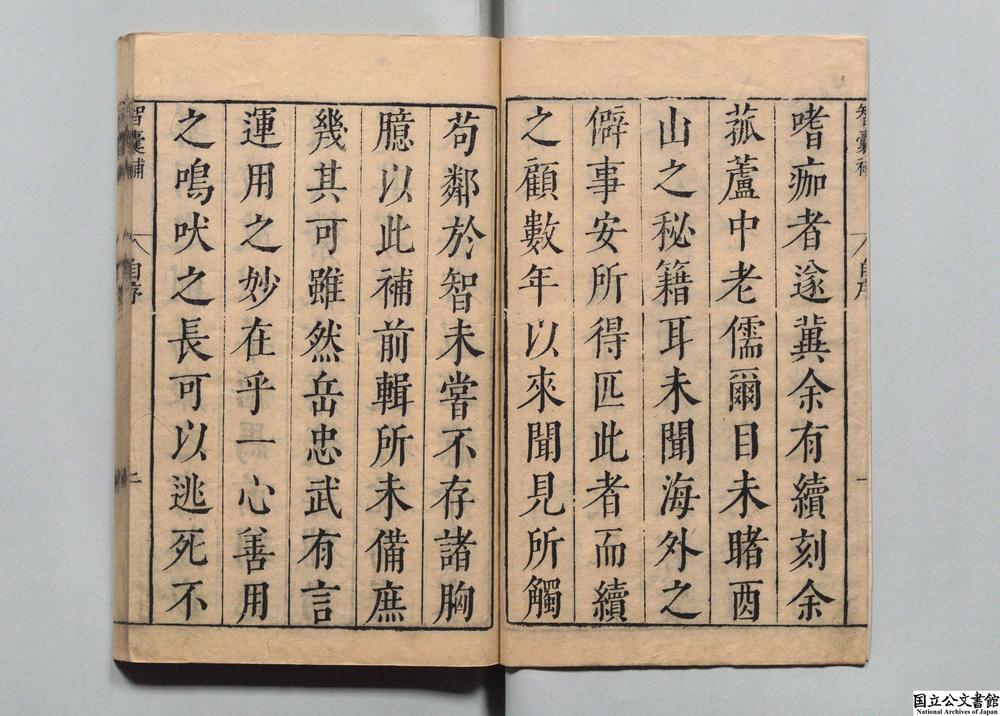 嗜痂者遂冀余有續刻余
菰蘆中老儒爾目未睹酉
山之秘籍耳未聞海外之
僻事安所得匹此者而續
之顧數年以來聞見所觸
苟鄰於智未嘗不存諸胸
臆以此補前輯所未備庶
幾其可雖然岳忠武有言
運用之妙在乎一心善用
之鳴吠之長可以逃死不
智囊補
自序
一
智囊補
自序
二
国立公文書館
National Archives of Japan